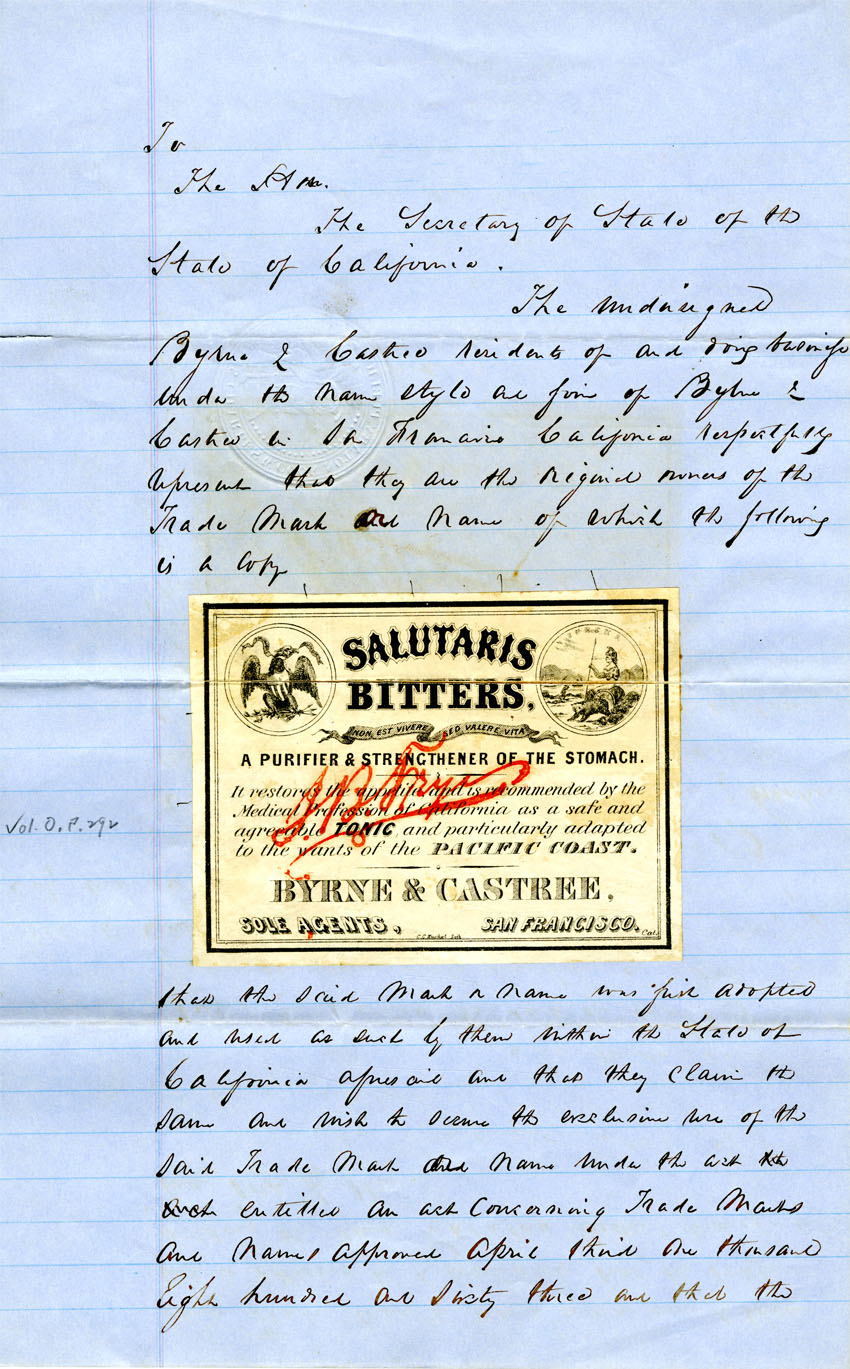 To
The Hon.
The Secretary of State of the
State of California.
The undersigned
Byrne & Castree residents of and doing business
under the name style and firm of Byrne &
Castree in San Francisco California respectfully
represent that they are the original owners of the
Trade Mark and Name of which the following
is a copy
EUREKA
SALUTARIS
BITTERS,
NON EST VIVERE SED VALERE VITA
A PURIFIER & STRENGTHENER OF THE STOMACH.
It restores the appetite and is recommended by the
Medical Profession of California as a safe and
agreeable TONIC, and particularly adapted
to the wants of the PACIFIC COAST.
Vol. O, P. 292
BYRNE & CASTREE,
SOLE AGENTS, SAN FRANCISCO.
Lith. Cal.
that the said Mark or name was first adopted
and used as such by them within the State of
California aforesaid and that they claim the
same and wish to secure the exclusive use of the
said Trade Mark and Name under the act
entitled an act Concerning Trade Marks
and Names approved April third one thousand
Eight hundred and Sixty three and that the